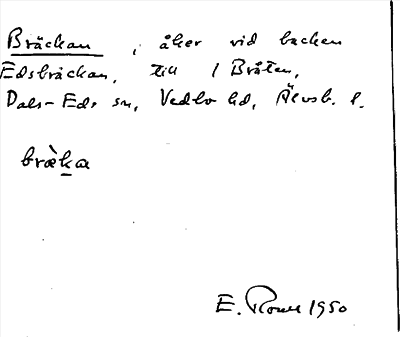 Bräckan, åker vid backen
Edsbräckan, till 1 Bråten,
Dals-Eds sn, Vedbo hd, Älvsb. l.
bræ̀ka
E. 1950